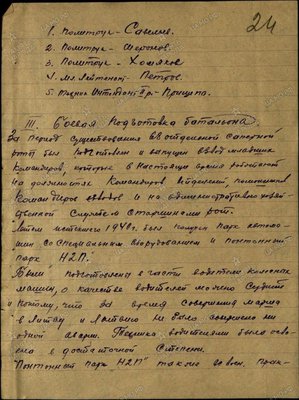 24
1. Политрук - 
2. Политрук - Шоронов.
3. Политрук - Хомяков
4. Мл. Лейтенант - Петров.
5. Техник Интендант II р. - 
III. Боевая Подготовка батальона.
За период существования 88 отдельной Саперной
роты был подготовлен и выпущен взвод младших
Командиров, которые в настоящее время работают
на должностях Командиров отделений помощников
Командиров взводов и на административно хозяй-
ственной Службе Старшинами рот.
1940г. был получен парк автома-
шин со Специальным оборудованием и понтонный
парк Н2П.
Были подготовлены в части водители колесных
машин, о качестве водителей можно Судить
и потому, что за время совершения марша
в Литву и Латвию не было совершено ни
одной аварии. Техника водителями была осво-
ена в достаточной Степени.
"Понтонный парк Н2П" также